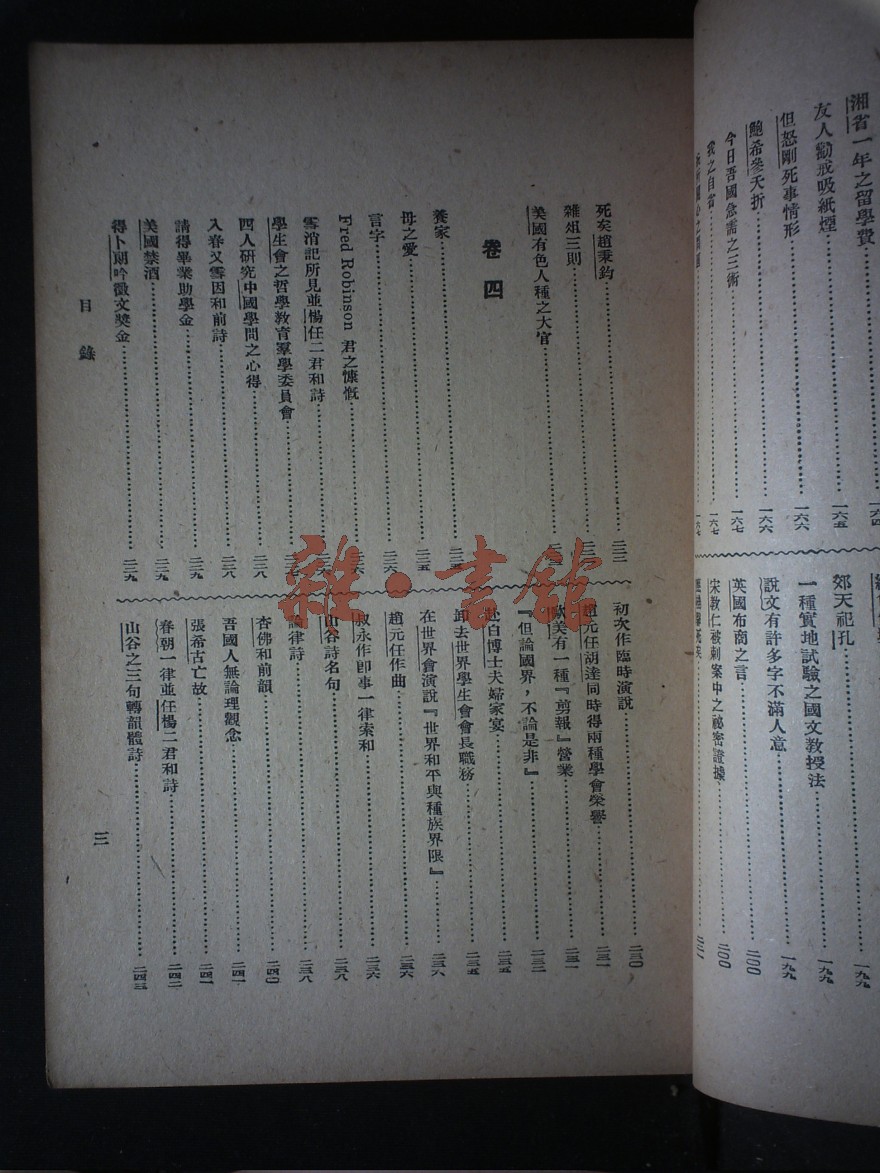 湘省一年之留學費……一六四
友人勸戒吸紙煙……一六五
但怒剛死事情形……一六六
鮑希參夭折……一六六
今日吾國急需之三術……一六七
我之自省……一六七
郊天祀孔……一九九
一種實地試驗之國文教授法……一九九
說文有許多字不滿人意……一九九
英國布商之言……二〇〇
宋教仁被刺案中之祕密證據……二〇〇
死矣趙秉鈞
雜俎三則
美國有色人種之大官
卷四
養家
母之愛……二三五
言字……二三六
Fred Robinson 君之慷慨……二三六
雪消記所見並楊任二君和詩
學生會之哲學教育羣學委員會……二三七
四人研究中國學問之心得……二三八
入春又雪因和前詩……二三八
請得畢業助學金……二三九
美國禁酒……二三九
得卜朗吟徵文獎金……二三九
初次作臨時演說……二三〇
趙元任胡達同時得兩種學會榮譽……二三一
歐美有一種『剪報』營業……二三一
『但論國界，不論是非』……二三二
赴白博士夫婦家宴……二三五
卸去世界學生會會長職務……二三五
在世界會演說『世界和平與種族界限』……二三六
趙元任作曲……二三六
叔永作即事一律索和……二三六
山谷詩名句……二三八
論律詩……二三八
杏佛和前韻……二四〇
吾國人無論理觀念……二四一
張希古亡故……二四一
春朝一律並任楊二君和詩……二四二
山谷之三句轉韻體詩……二四三
目錄
三
雜·書館